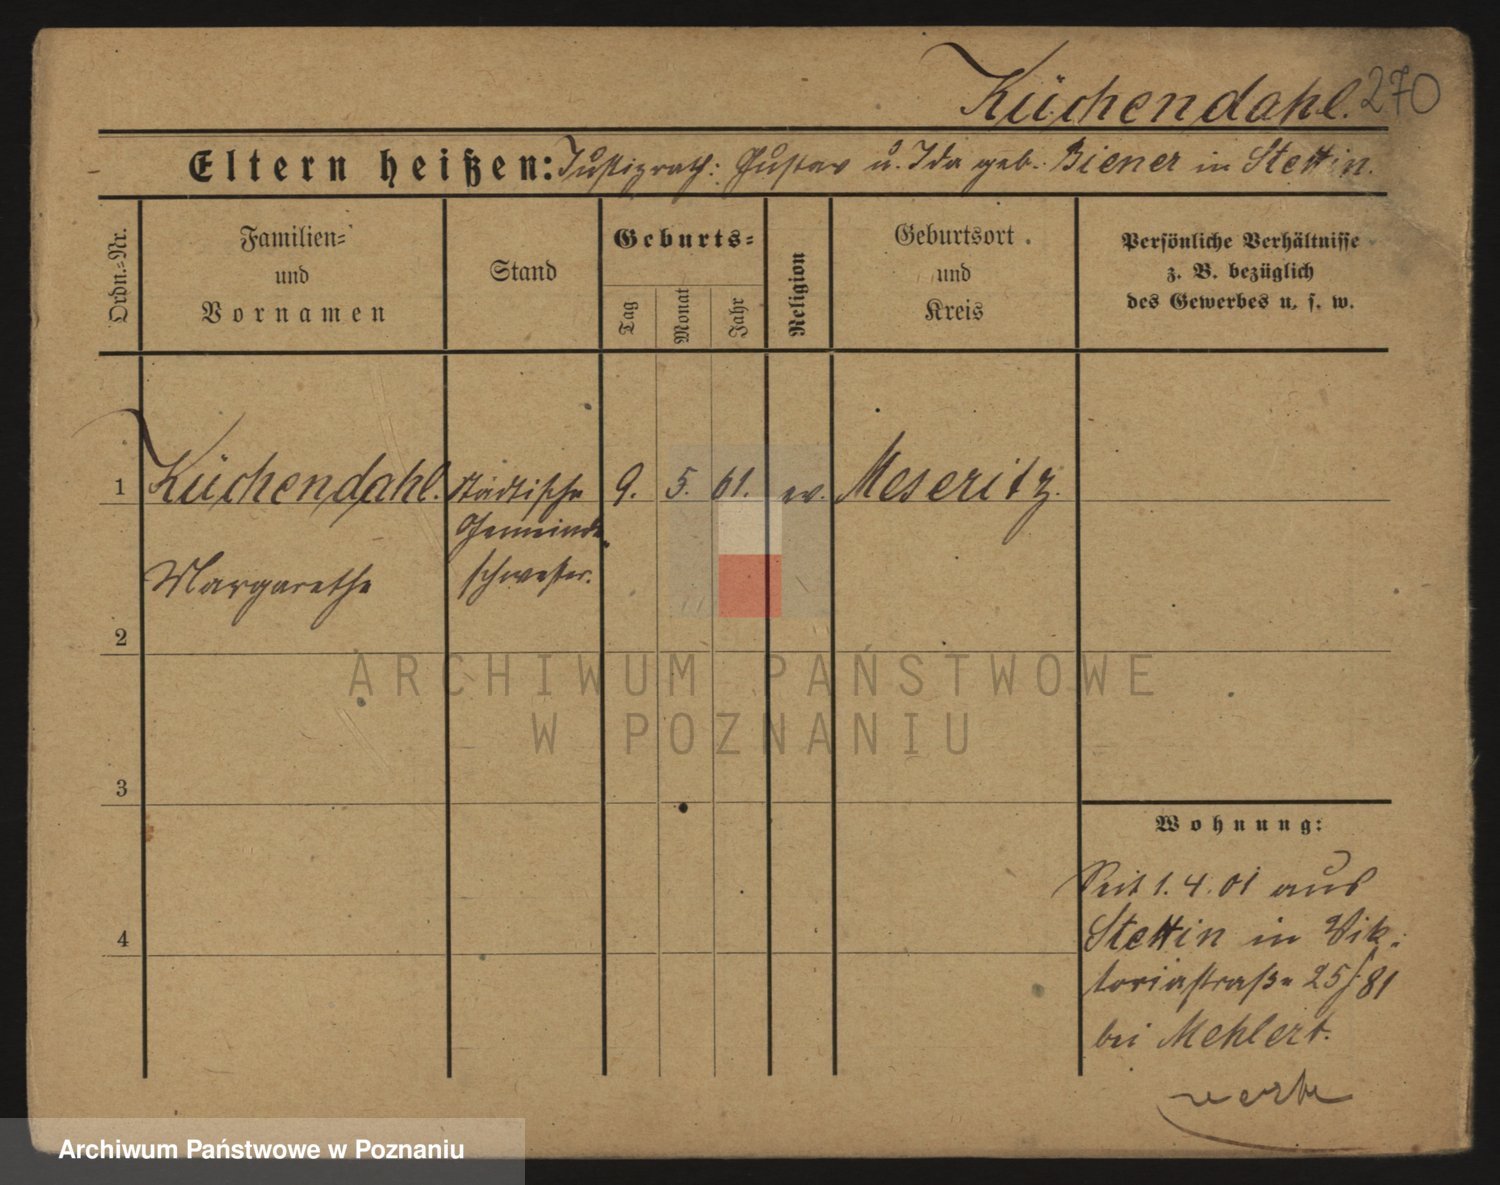 Küchendahl. 270
Eltern heißen: Justizrath: Gustav u. Ida geb. Biener in Stettin.
Ordn.-Nr.
Familien-
und
Vornamen
Stand
Geburts-
Tag
Monat
Jahr
Religion
Geburtsort
und
Kreis
Persönliche Verhältnisse
z. B. bezüglich
des Gewerbes u. s. w.
1 Küchendahl. städtische 9. 5. 61. ev. Meseritz.
Gemeinde
Margarethe schwester.
2
ARCHIWUM PAŃSTWOWE
W POZNANIU
3
Wohnung:
Seit 1.4.01 aus
4
Stettin in Vik-
toriastraße 25/81
bei Mehlert.
Archiwum Państwowe w Poznaniu